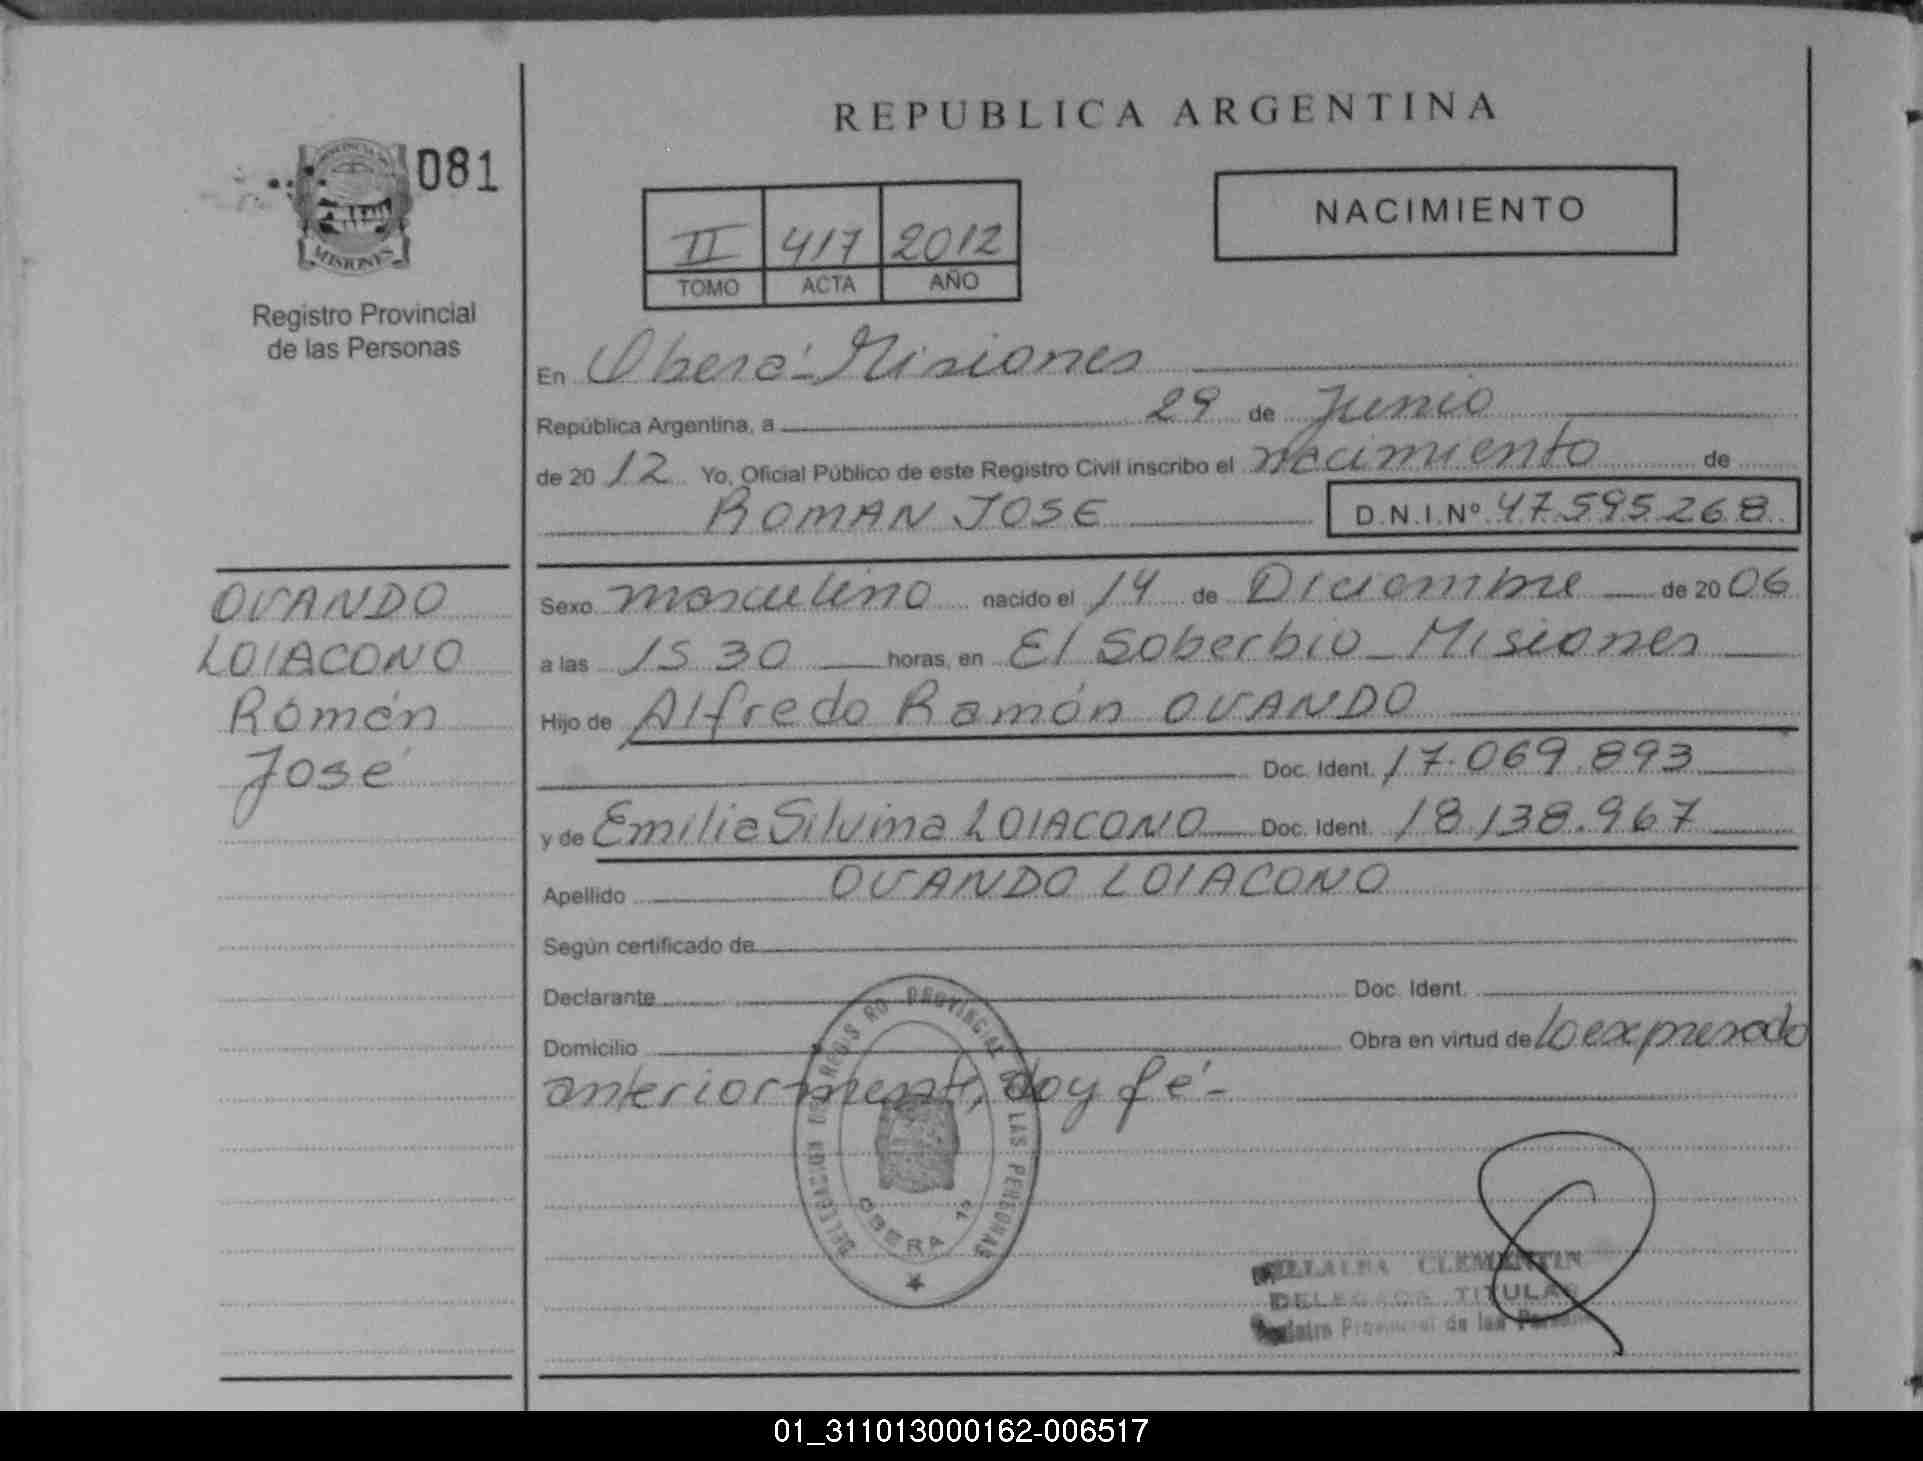 REPUBLICA ARGENTINA
081
MISIONES
Registro Provincial
de las Personas
II 417 2012
TOMO ACTA AÑO
NACIMIENTO
En Oberá - Misiones
República Argentina, a 29 de Junio
de 2012 Yo, Oficial Público de este Registro Civil inscribo el nacimiento de
ROMAN JOSE D.N.I.Nº 47.595.268
OVANDO
LOIACONO
Román
José
Sexo masculino nacido el 14 de Diciembre de 2006
a las 15 30 horas, en El Soberbio - Misiones
Hijo de Alfredo Ramón OVANDO
Doc. Ident. 17.069.893
y de Emilia Silvina LOIACONO Doc. Ident. 18.138.967
Apellido OVANDO LOIACONO
Según certificado de
Declarante Doc. Ident.
Domicilio Obra en virtud de lo expresado
anteriormente, doy fé -
DELEGACION DEL REGISTRO PROVINCIAL DE LAS PERSONAS
OBERA 1ª
VILLALBA CLEMENTIN
DELEGADA TITULAR
Registro Provincial de las Personas
01_311013000162-006517